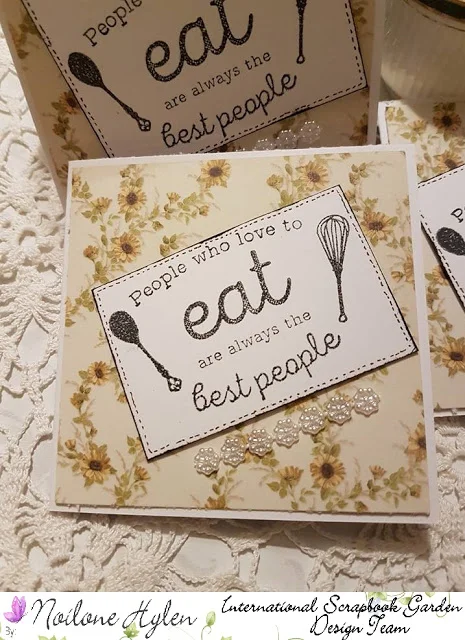 People
eat
are always the
best people
People who love to
eat
are always the
best people
By: Noilone Hylen
International Scrapbook Garden
Design Team